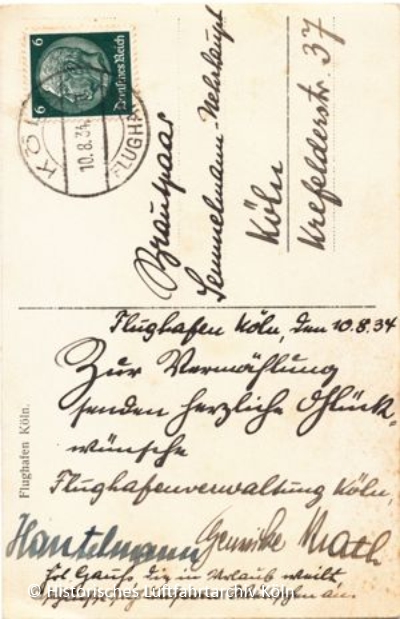 6 6
Deutsches Reich
KÖL
10.8.34.
FLUGHA
Brautpaar
Semmelmann-Nehrhaupt
Köln
Krefelderstr. 37
Flughafen Köln, den 10.8.34
Zur Vermählung
senden herzliche Glück-
wünsche
Flughafenverwaltung Köln,
Hantelmann
Frl. Gauss, die in Urlaub weilt
Flughafen Köln.
© Historisches Luftfahrtarchiv Köln